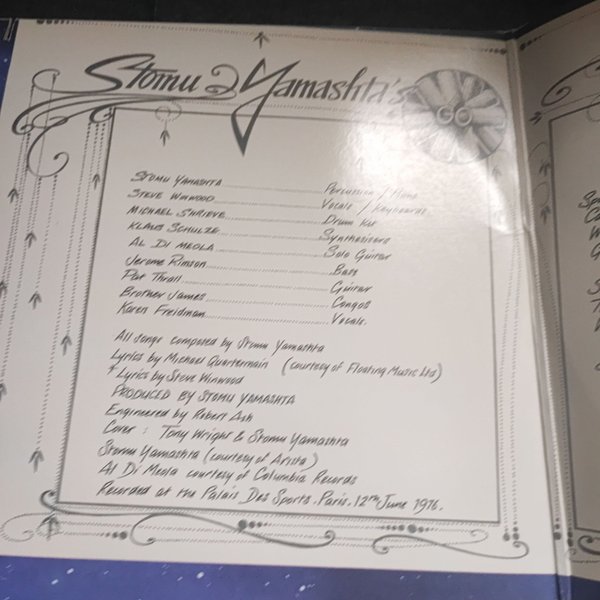 Stomu Yamashta's
GO
Stomu Yamashta........Percussion / Piano
Steve Winwood........Vocals / Keyboards
Michael Shrieve........Drum Kit
Klaus Schulze........Synthesisers
Al Di Meola........Solo Guitar
Jerome Rimson........Bass
Pat Thrall........Guitar
Brother James........Congos
Karen Freidman........Vocals.
All songs composed by Stomu Yamashta
Lyrics by Michael Quartermain (courtesy of Floating Music Ltd)
* Lyrics by Steve Winwood
PRODUCED BY STOMU YAMASHTA
Engineered by Robert Ash
Cover : Tony Wright & Stomu Yamashta
Stomu Yamashta (courtesy of Arista)
Al Di Meola courtesy of Columbia Records
Recorded at the Palais Des Sports. Paris. 12th June 1976.